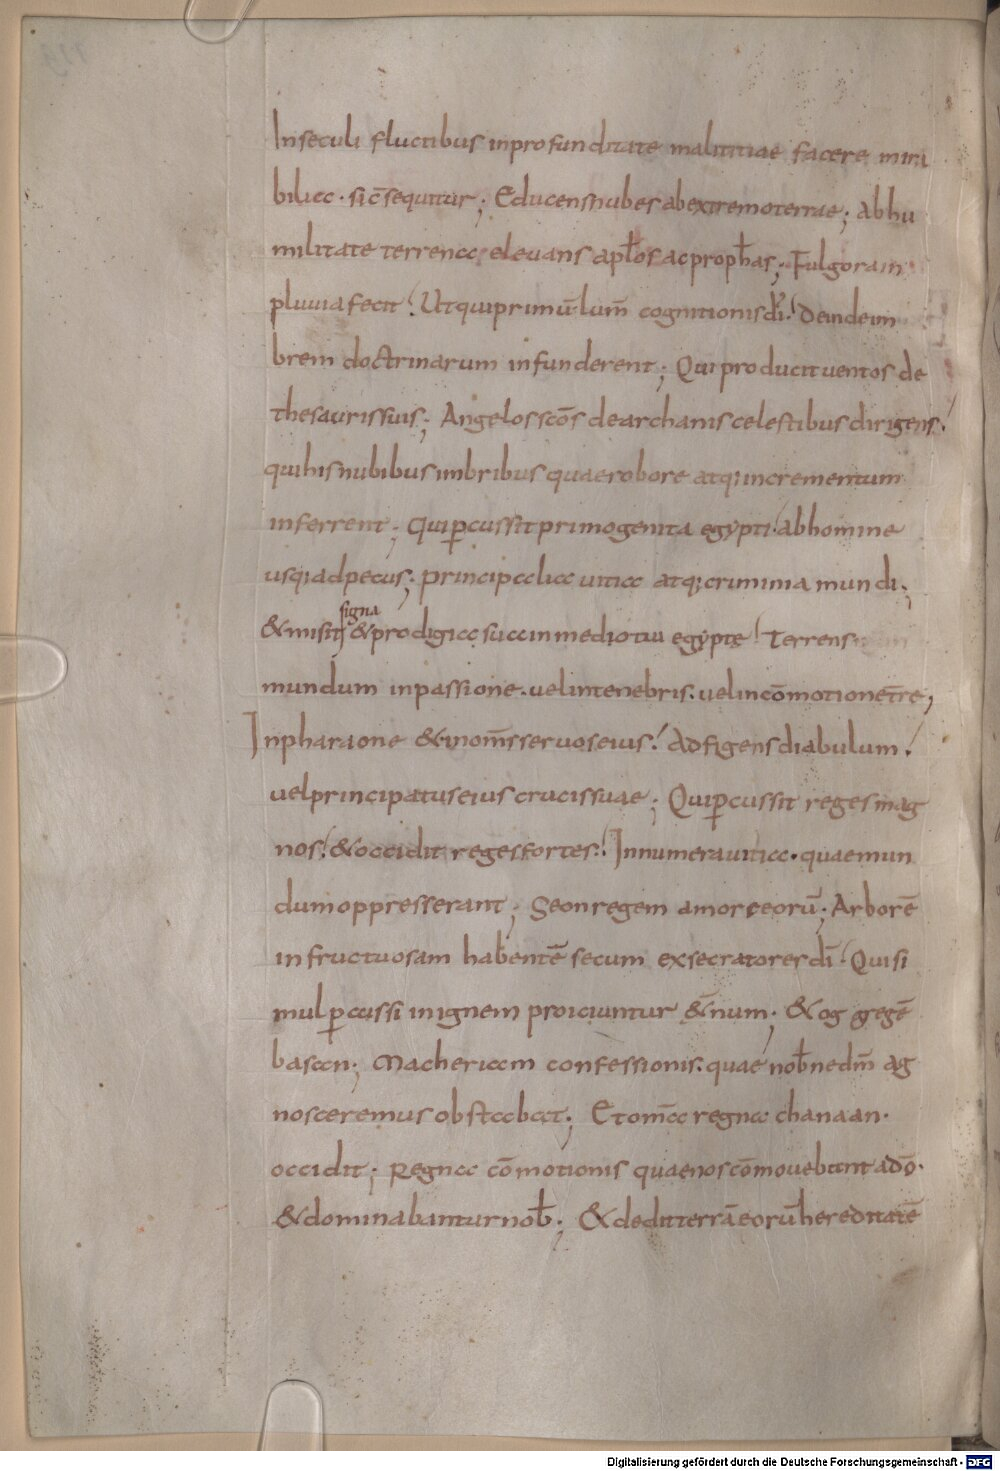 Inseculi fluctibus inprofunditate malititiae facere mira
bilia. sic̄ sequitur; Educensnubes abextremoterrae; abhu
militate terrena elevans apƚos acprophas; Fulgora in
pluviafecit! Ut quiprimū lum̄ cognitionis dī! Deindeim
brem doctrinarum infunderent; Quiproducit uentos de
thesaurissuis; Angelos scōs dearchanis celestibus dirigens!
quihisnubibus imbribus quaerobore atq; incrementum
inferrent; Quiꝑcussit primogenita egypti! abhomine
usq; adpecus; Principalia uitia atq; crimina mundi;
signa
&misit &prodigia sua inmediotui egypte! Terrens
mundum inpassione. velintenebris. velincōmotione tr̄e;
Inpharaone &inom̄s servos eius! Adfigens diabulum!
velprincipatus eius crucissuae; Quiꝑcussit reges mag
nos! &occidit reges fortes! Innumera uitia. quaemun
dumoppresserant; Seonregem amorreorū; Arborē
infructuosam habentē secum exsecratores dī! Quisi
mulꝑcussi inignem proiciuntur &̄num; &og gegē
basan; Macheriam confessionis. quae nob̄ nedm̄ ag
nosceremus obstabat; Et om̄a regna chanaan.
occidit; Regna cōmotionis quaenoscōmovebant adō.
&dominabantur nob̄; &dedit terrā eorū hereditatē
Digitalisierung gefördert durch die Deutsche Forschungsgemeinschaft - DFG